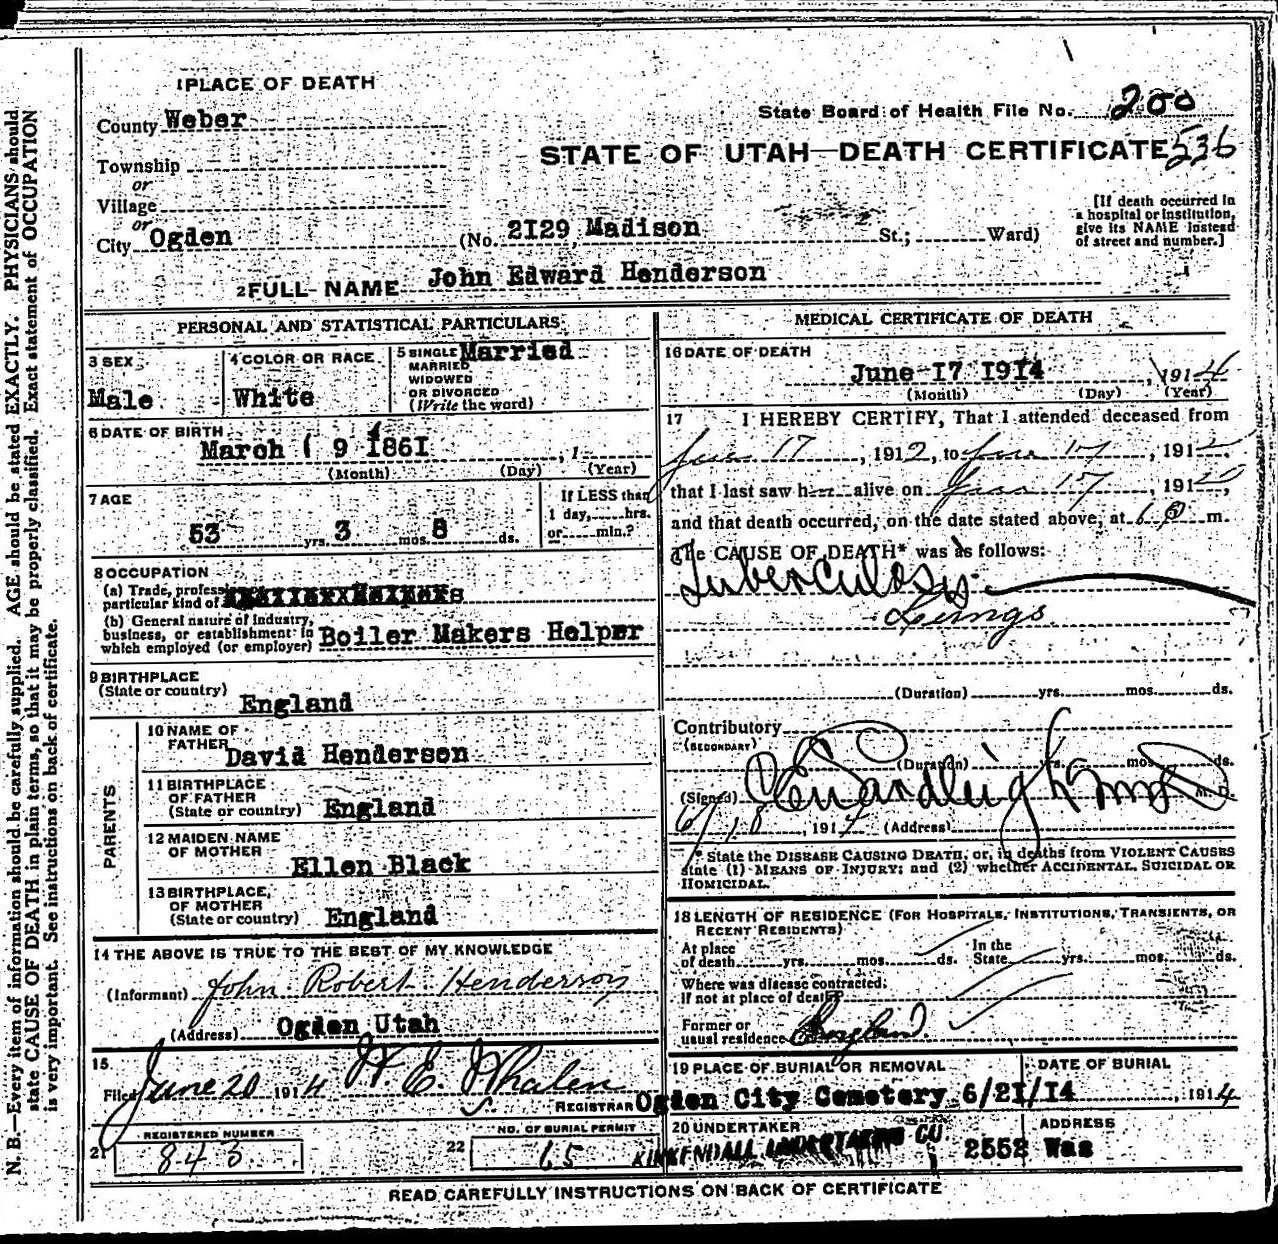 N. B.—Every item of information should be carefully supplied. AGE should be stated EXACTLY. PHYSICIANS should
state CAUSE OF DEATH in plain terms, so that it may be properly classified. Exact statement of OCCUPATION
is very important. See instructions on back of certificate.
1 PLACE OF DEATH
County Weber
Township
or
Village
or
City Ogden
State Board of Health File No. 200
STATE OF UTAH—DEATH CERTIFICATE 536
(No. 2I29 Madison St.; Ward)
[If death occurred in
a hospital or institution,
give its NAME instead
of street and number.]
2 FULL NAME John Edward Henderson
PERSONAL AND STATISTICAL PARTICULARS
3 SEX
Male
4 COLOR OR RACE
White
5 SINGLE Married
MARRIED
WIDOWED
OR DIVORCED
(Write the word)
6 DATE OF BIRTH
March 9 1861 , 1
(Month) (Day) (Year)
7 AGE
53 yrs. 3 mos. 8 ds.
If LESS than
1 day, hrs.
or min.?
8 OCCUPATION
(a) Trade, profess
particular kind of
(b) General nature of industry,
business, or establishment in
which employed (or employer) Boiler Makers Helper
9 BIRTHPLACE
(State or country)
England
PARENTS
10 NAME OF
FATHER David Henderson
11 BIRTHPLACE
OF FATHER
(State or country) England
12 MAIDEN NAME
OF MOTHER
Ellen Black
13 BIRTHPLACE
OF MOTHER
(State or country) England
14 THE ABOVE IS TRUE TO THE BEST OF MY KNOWLEDGE
(Informant) John Robert Henderson
(Address) Ogden Utah
15
Filed June 20 1914 W. E. Whalen
REGISTRAR
21 REGISTERED NUMBER
843
22 NO. OF BURIAL PERMIT
65
MEDICAL CERTIFICATE OF DEATH
16 DATE OF DEATH
June I7 I9I4 , 1914
(Month) (Day) (Year)
17 I HEREBY CERTIFY, That I attended deceased from
June 17, 1912, to June 17, 191
that I last saw h alive on June 17, 191
and that death occurred, on the date stated above, at m.
The CAUSE OF DEATH* was as follows:
Tuberculosis
Lungs
(Duration) yrs. mos. ds.
Contributory
(SECONDARY)
(Duration) yrs. mos. ds.
(Signed) M. D.
6/18, 1914 (Address)
* State the DISEASE CAUSING DEATH, or, in deaths from VIOLENT CAUSES
state (1) MEANS OF INJURY; and (2) whether ACCIDENTAL, SUICIDAL OR
HOMICIDAL.
18 LENGTH OF RESIDENCE (FOR HOSPITALS, INSTITUTIONS, TRANSIENTS, OR
RECENT RESIDENTS)
At place
of death yrs. mos. ds. In the
State yrs. mos. ds.
Where was disease contracted,
if not at place of death?
Former or
usual residence England
19 PLACE OF BURIAL OR REMOVAL
Ogden City Cemetery
DATE OF BURIAL
6/2I/I4 , 1914
20 UNDERTAKER
KIRKENDALL UNDERTAKING CO
ADDRESS
2552 Was
READ CAREFULLY INSTRUCTIONS ON BACK OF CERTIFICATE